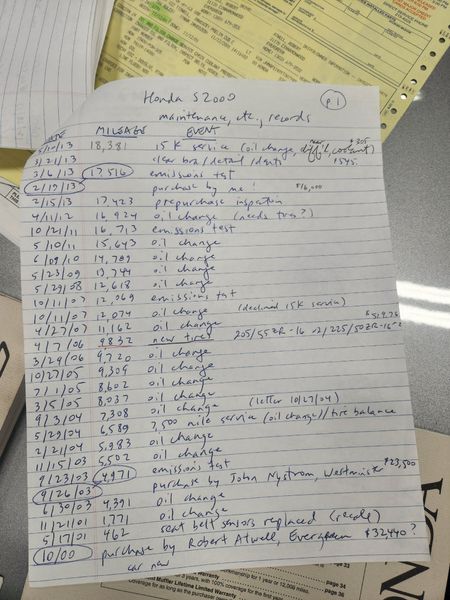 Honda S2000
p 1
maintenance, etc., records
DATE MILEAGE EVENT
18,381 15K service (oil change, rear diff'l, coolant) $305
3/21/13 clear bra/detail/dents 1545.
3/6/13 17,516 emissions test
2/19/13 purchase by me! $16,000
2/15/13 17,423 prepurchase inspection
4/11/12 16,924 oil change (needs tires?)
10/21/11 16,713 emissions test
5/10/11 15,643 oil change
6/09/10 14,789 oil change
5/23/09 13,744 oil change
5/29/08 12,618 oil change
10/11/07 12,069 emissions test
10/11/07 12,074 oil change (declined 15K service)
4/27/07 11,162 oil change
4/7/06 9,832 new tires 205/55ZR-16 -2/225/50ZR-16-2
3/29/06 9,720 oil change
10/27/05 9,309 oil change
7/1/05 8,602 oil change
3/5/05 8,037 oil change
9/3/04 7,308 oil change (letter 10/27/04)
5/22/04 6,589 7,500 mile service (oil change)/tire balance
2/21/04 5,983 oil change
11/15/03 5,502 oil change
9/23/03 4,971 emissions test
9/26/03 purchase by John Nystrom, Westminster $23,500
6/30/03 4,391 oil change
11/21/01 1,771 oil change
5/17/01 462 seat belt sensors replaced (recall)
10/00 purchase by Robert Atwell, Evergreen $32,440?
car new
page 34
page 36